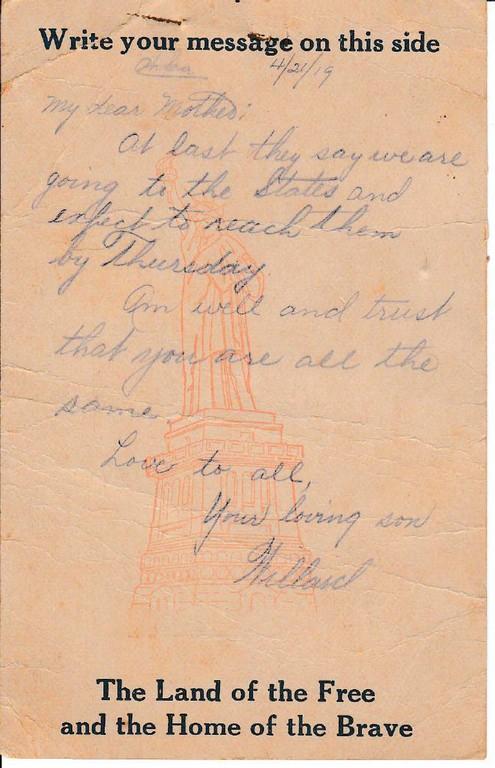 Write your message on this side
4/21/19
My dear Mother:
At last they say we are
going to the States and
expect to reach them
by Thursday.
Am well and trust
that you are all the
same
Love to all,
Your loving son
Willard
The Land of the Free
and the Home of the Brave